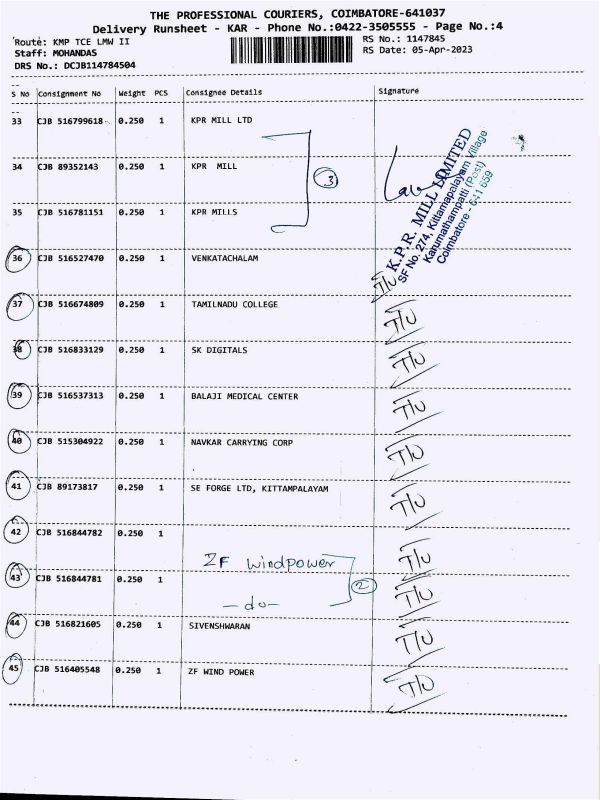 THE PROFESSIONAL COURIERS, COIMBATORE-641037
Delivery Runsheet - KAR - Phone No.:0422-3505555 - Page No.:4
Route: KMP TCE LMW II
RS No.: 1147845
Staff: MOHANDAS
RS Date: 05-Apr-2023
DRS No.: DCJB114784504
S No Consignment No Weight PCS Consignee Details Signature
33 CJB 516799618 0.250 1 KPR MILL LTD
34 CJB 89352143 0.250 1 KPR MILL
3
35 CJB 516781151 0.250 1 KPR MILLS
K.P.R. MILL LIMITED
SF No. 274, Kittampalayam Village
Karumathampatti (Post)
Coimbatore - 641 659
36 CJB 516527470 0.250 1 VENKATACHALAM T/U
37 CJB 516674809 0.250 1 TAMILNADU COLLEGE T/U
38 CJB 516833129 0.250 1 SK DIGITALS T/U
39 CJB 516537313 0.250 1 BALAJI MEDICAL CENTER T/U
40 CJB 515304922 0.250 1 NAVKAR CARRYING CORP T/U
41 CJB 89173817 0.250 1 SE FORGE LTD, KITTAMPALAYAM T/U
42 CJB 516844782 0.250 1 ZF windpower T/U
2
43 CJB 516844781 0.250 1 -do- T/U
44 CJB 516821605 0.250 1 SIVENSHWARAN T/U
45 CJB 516405548 0.250 1 ZF WIND POWER T/U